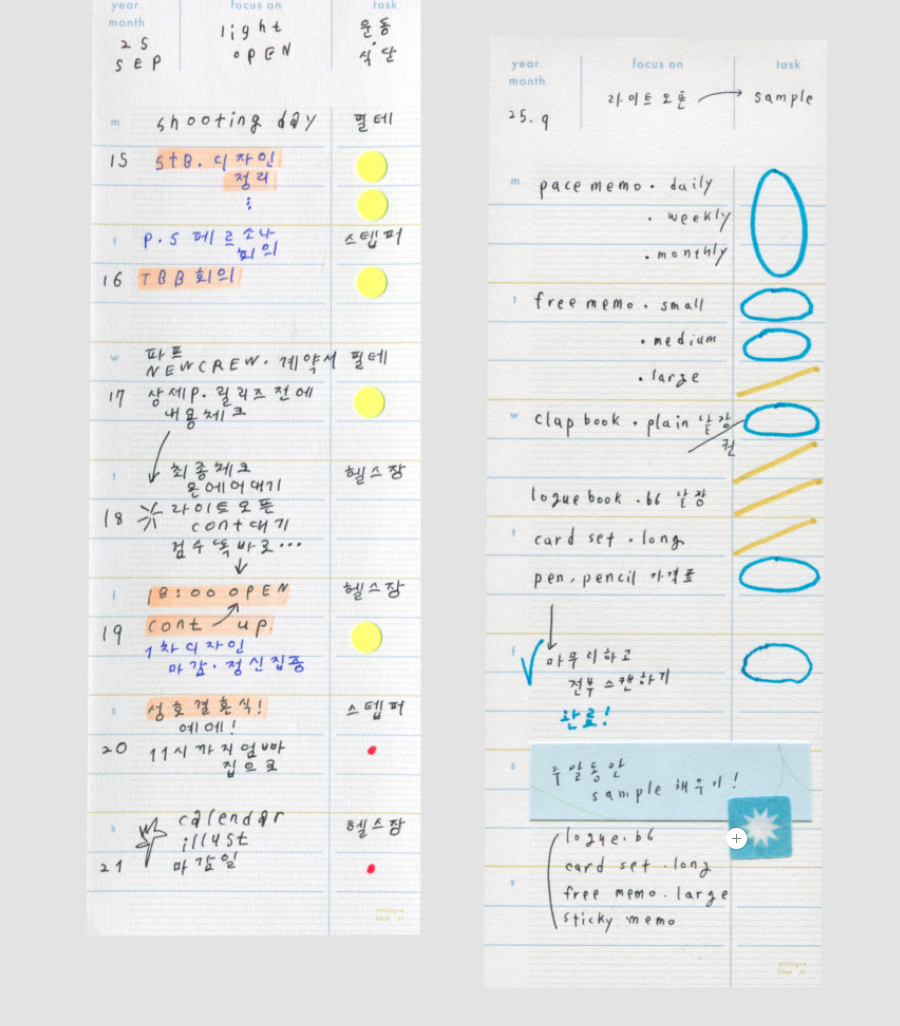 year.
month
focus on
task
25
SEP
light
OPEN
운동
식단
m
shooting day
필테
15
STB. 디자인
정리
t
P.S 페르소나
회의
스텝퍼
16
TBB회의
w
파프
NEWCREW. 계약서
필테
17
상세P. 릴리즈 전에
내용체크
t
최종체크
온에어대기
헬스장
18
라이트오픈
cont대기
검수똑바로...
f
18:00 OPEN
헬스장
19
cont up.
1차디자인
마감·정신집중
s
성호결혼식!
예에!
스텝퍼
20
11시까지엄빠
집으로
s
calendar
illust
헬스장
21
마감일
year.
month
focus on
task
25.9
라이트오픈
sample
m
pace memo. daily
. weekly
. monthly
t
free memo. small
. medium
. large
w
clap book. plain 낱장
권
logue book. b6 낱장
t
card set. long
pen, pencil 가격표
f
마무리하고
전부스캔하기
완료!
s
주말동안
sample 채우기!
logue. b6
card set. long
s
free memo. large
sticky memo